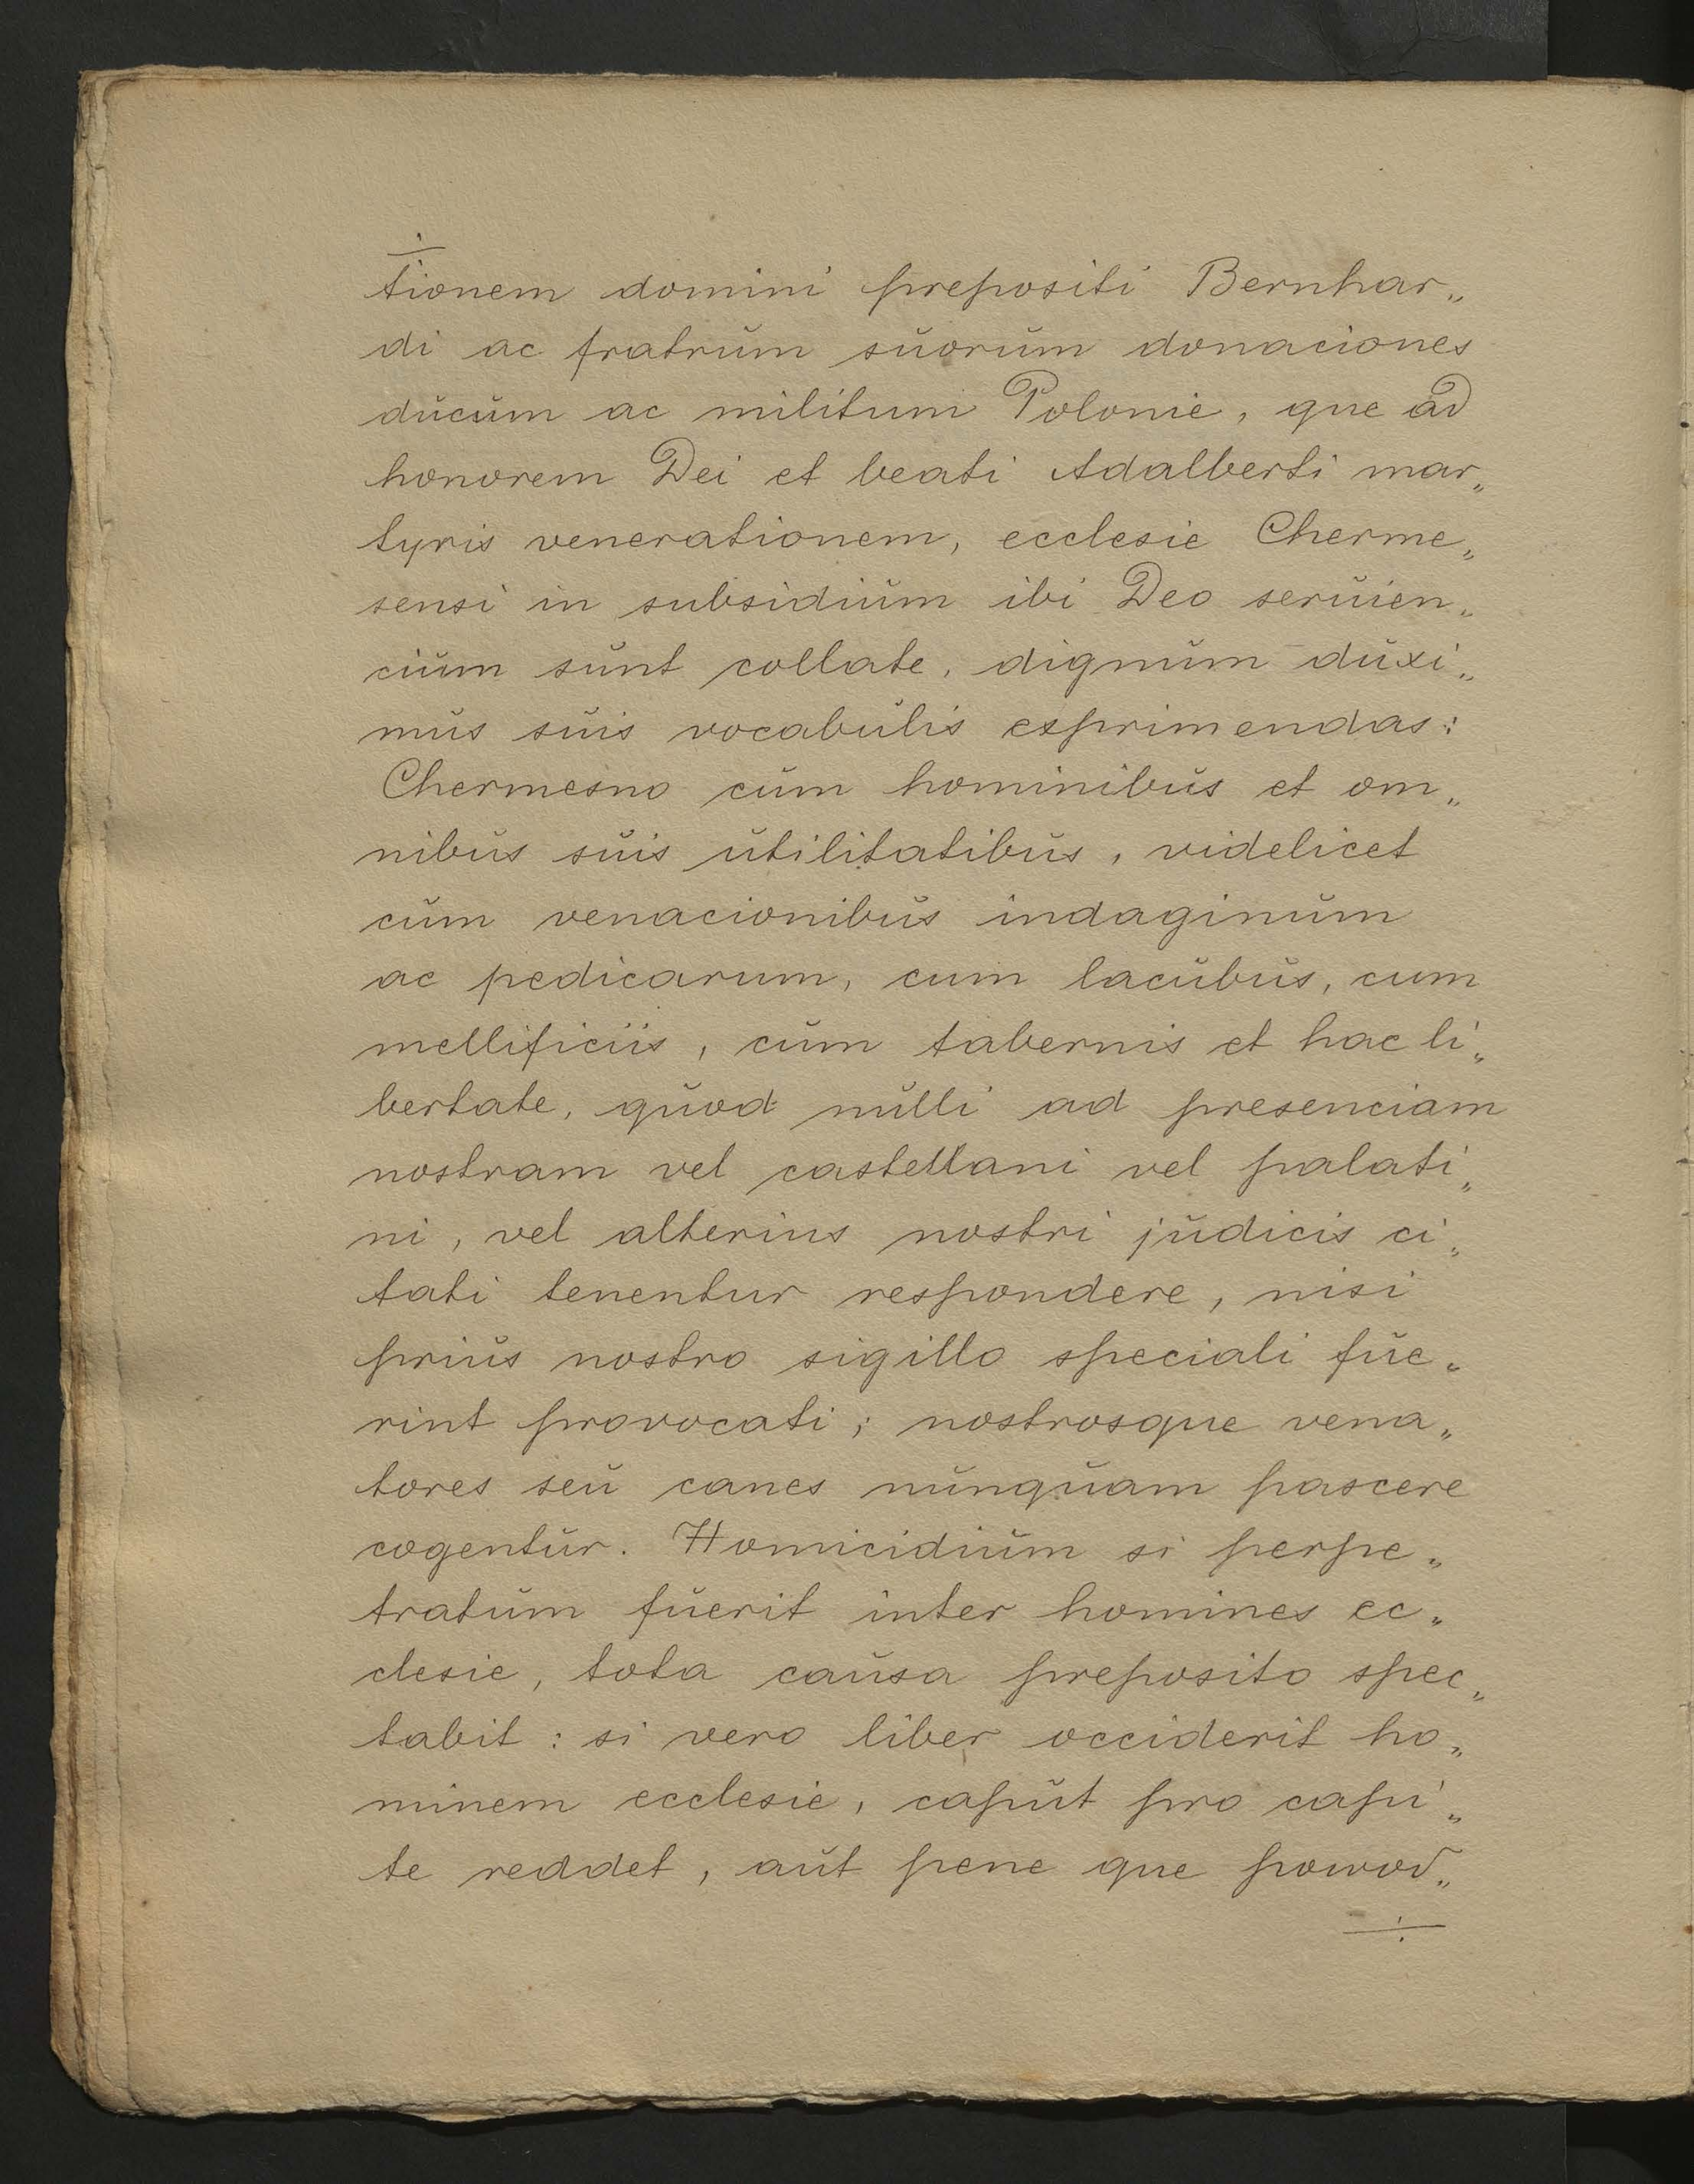 tionem domini prepositi Bernhar„
di ac fratrum suorum donaciones
ducum ac militum Polonie, que ad
honorem Dei et beati Adalberti mar„
tyris venerationem, ecclesie Cherme„
sensi in subsidium ibi Deo seruien„
cium sunt collate, dignum duxi„
mus suis vocabulis exprimendas:
Chermesno cum hominibus et om„
nibus suis utilitatibus, videlicet
cum venacionibus indaginum
ac pedicarum, cum lacubus, cum
mellificiis, cum tabernis et hac li„
bertate, quod nulli ad presenciam
nostram vel castellani vel palati„
ni, vel alterius nostri judicis ci„
tati tenentur respondere, nisi
prius nostro sigillo speciali fue„
rint provocati; nostrosque vena„
tores seu canes nunquam pascere
cogentur. Homicidium si perpe„
tratum fuerit inter homines ec„
clesie, tota causa preposito spec„
tabit: si vero liber occiderit ho„
minem ecclesie, caput pro capi„
te reddet, aut pene que powod„